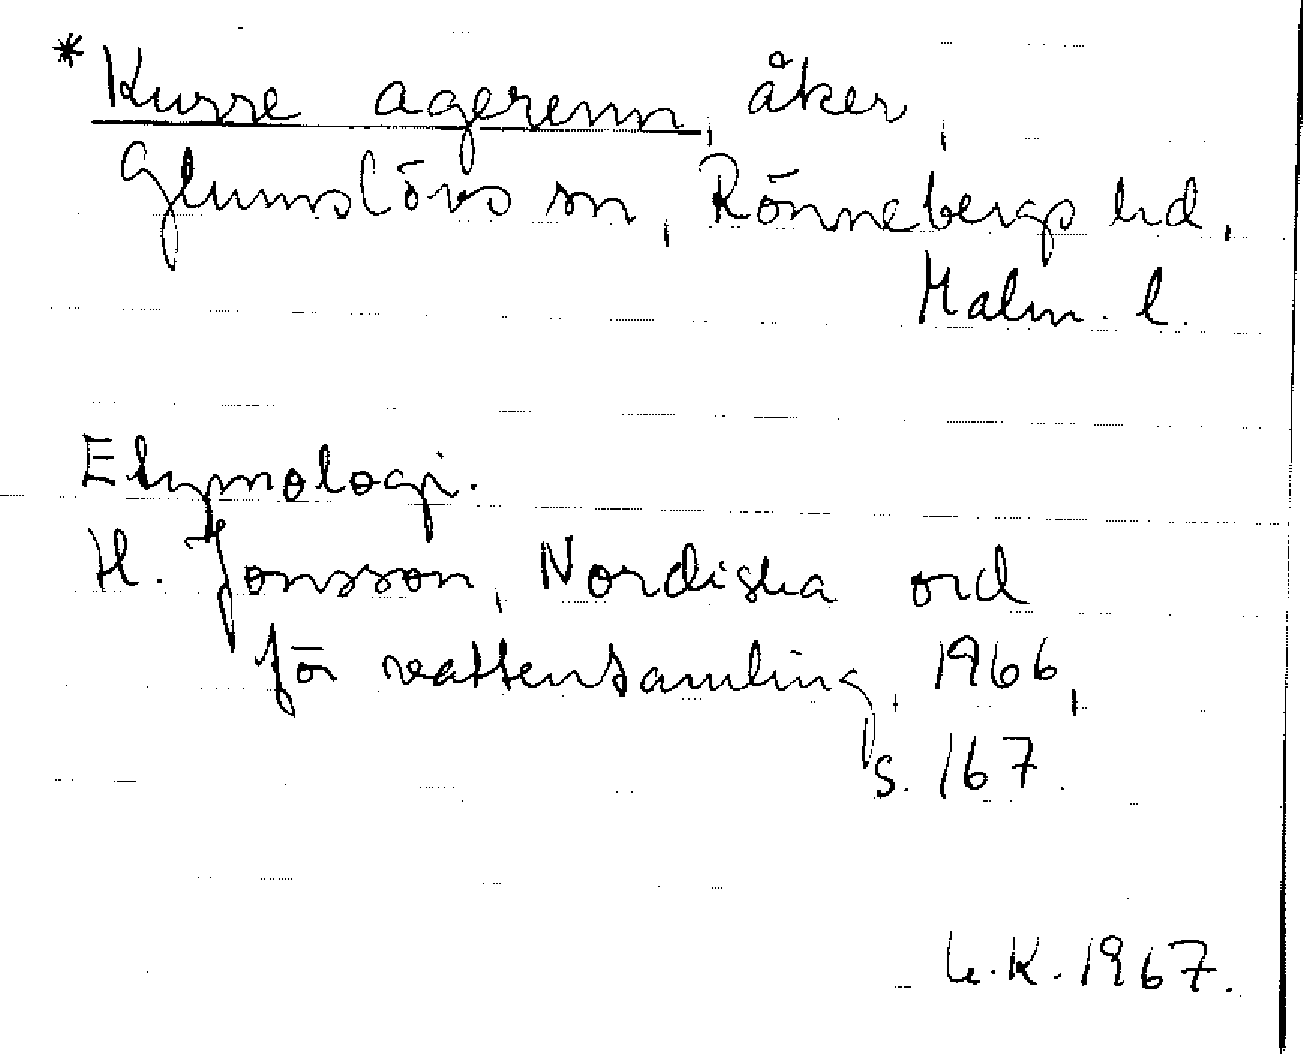 * Kurre agerenn, åker,
Glumslövs sn, Rönnebergs hd,
Malm. l.
Etymologi.
H. Jonsson, Nordiska ord
för vattensamling, 1966,
s. 167.
K. 1967.